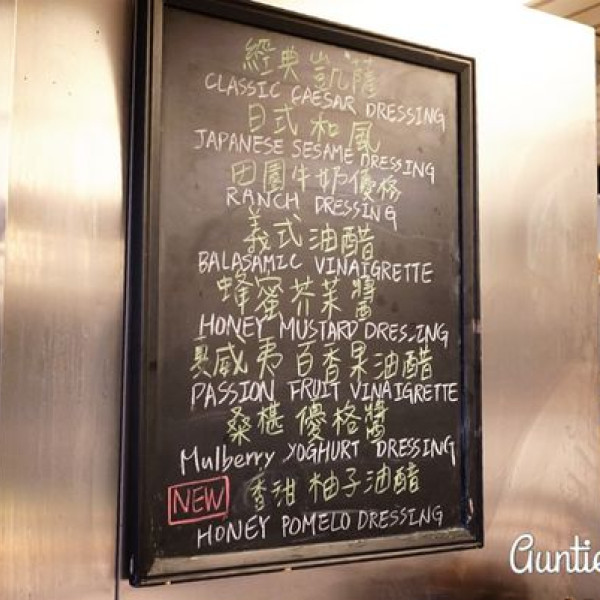 經典凱薩
CLASSIC CAESAR DRESSING
日式和風
JAPANESE SESAME DRESSING
田園牛奶優格
RANCH DRESSING
義式油醋
BALASAMIC VINAIGRETTE
蜂蜜芥茉醬
HONEY MUSTARD DRESSING
夏威夷百香果油醋
PASSION FRUIT VINAIGRETTE
桑椹優格醬
Mulberry YOGHURT DRESSING
NEW 香甜柚子油醋
HONEY POMELO DRESSING
Auntie